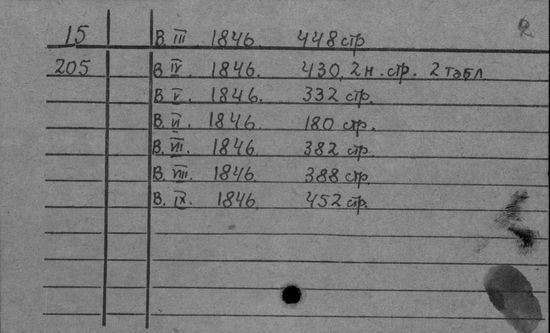 2
15 В. III. 1846. 448 стр
205 В IV. 1846. 430, 2 н. стр. 2 табл
В. V. 1846. 332 стр.
В. VI. 1846. 180 стр.
В. VII. 1846. 382 стр.
В. VIII. 1846. 388 стр.
В. IX. 1846. 452 стр.